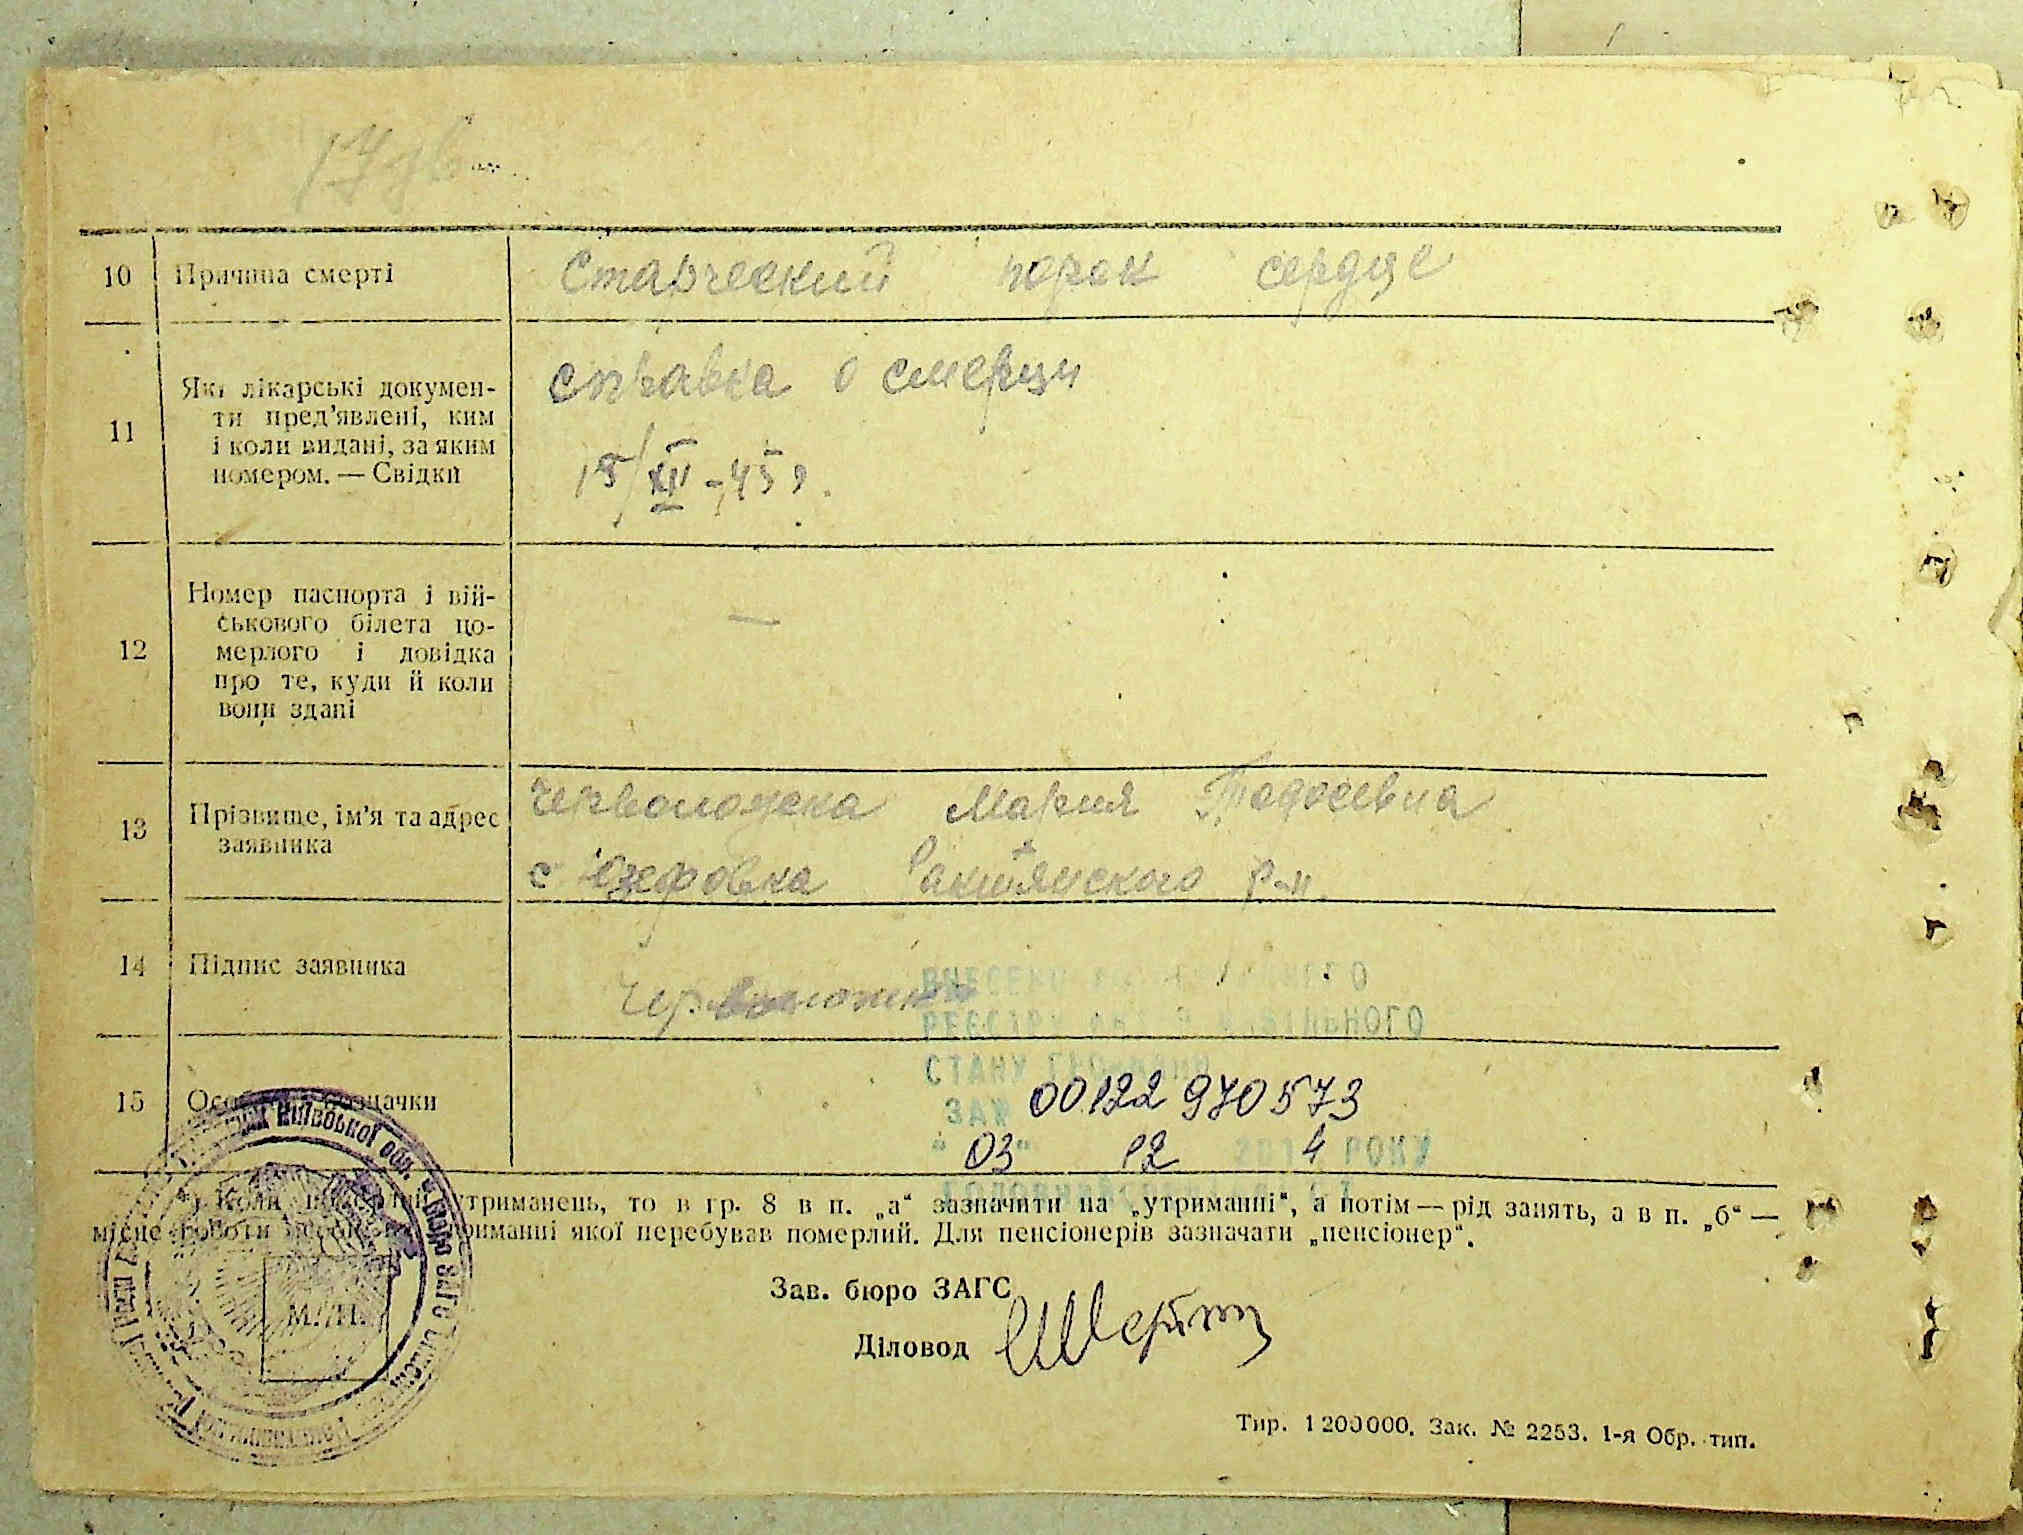 10 Причина смерті Старческий порок сердце
11 Які лікарські докумен-
ти пред'явлені, ким
і коли видані, за яким
номером. — Свідки
справка о смерци
15/XII-45 г.
12 Номер паспорта і вій-
ськового білета по-
мерлого і довідка
про те, куди й коли
вони здані
—
13 Прізвище, ім'я та адрес
заявника
Мария Тодосевна
с Юзефовка Ракитянского р-н
14 Підпис заявника
15 Особливі зазначки
ВНЕСЕНО
РЕЄСТРУ
СТАНУ ГРОМАДЯН
ЗА № 00122970573
"03" 12 2014 РОКУ
*) Коли померлий утриманець, то в гр. 8 в п. „а“ зазначити на „утриманні“, а потім — рід занять, а в п. „б“ —
місце роботи особи, на утриманні якої перебував померлий. Для пенсіонерів зазначати „пенсіонер“.
Зав. бюро ЗАГС
Діловод
М. П.
Київської обл. Бюро ЗАГС
Тир. 1 200000. Зак. № 2253. 1-я Обр. тип.